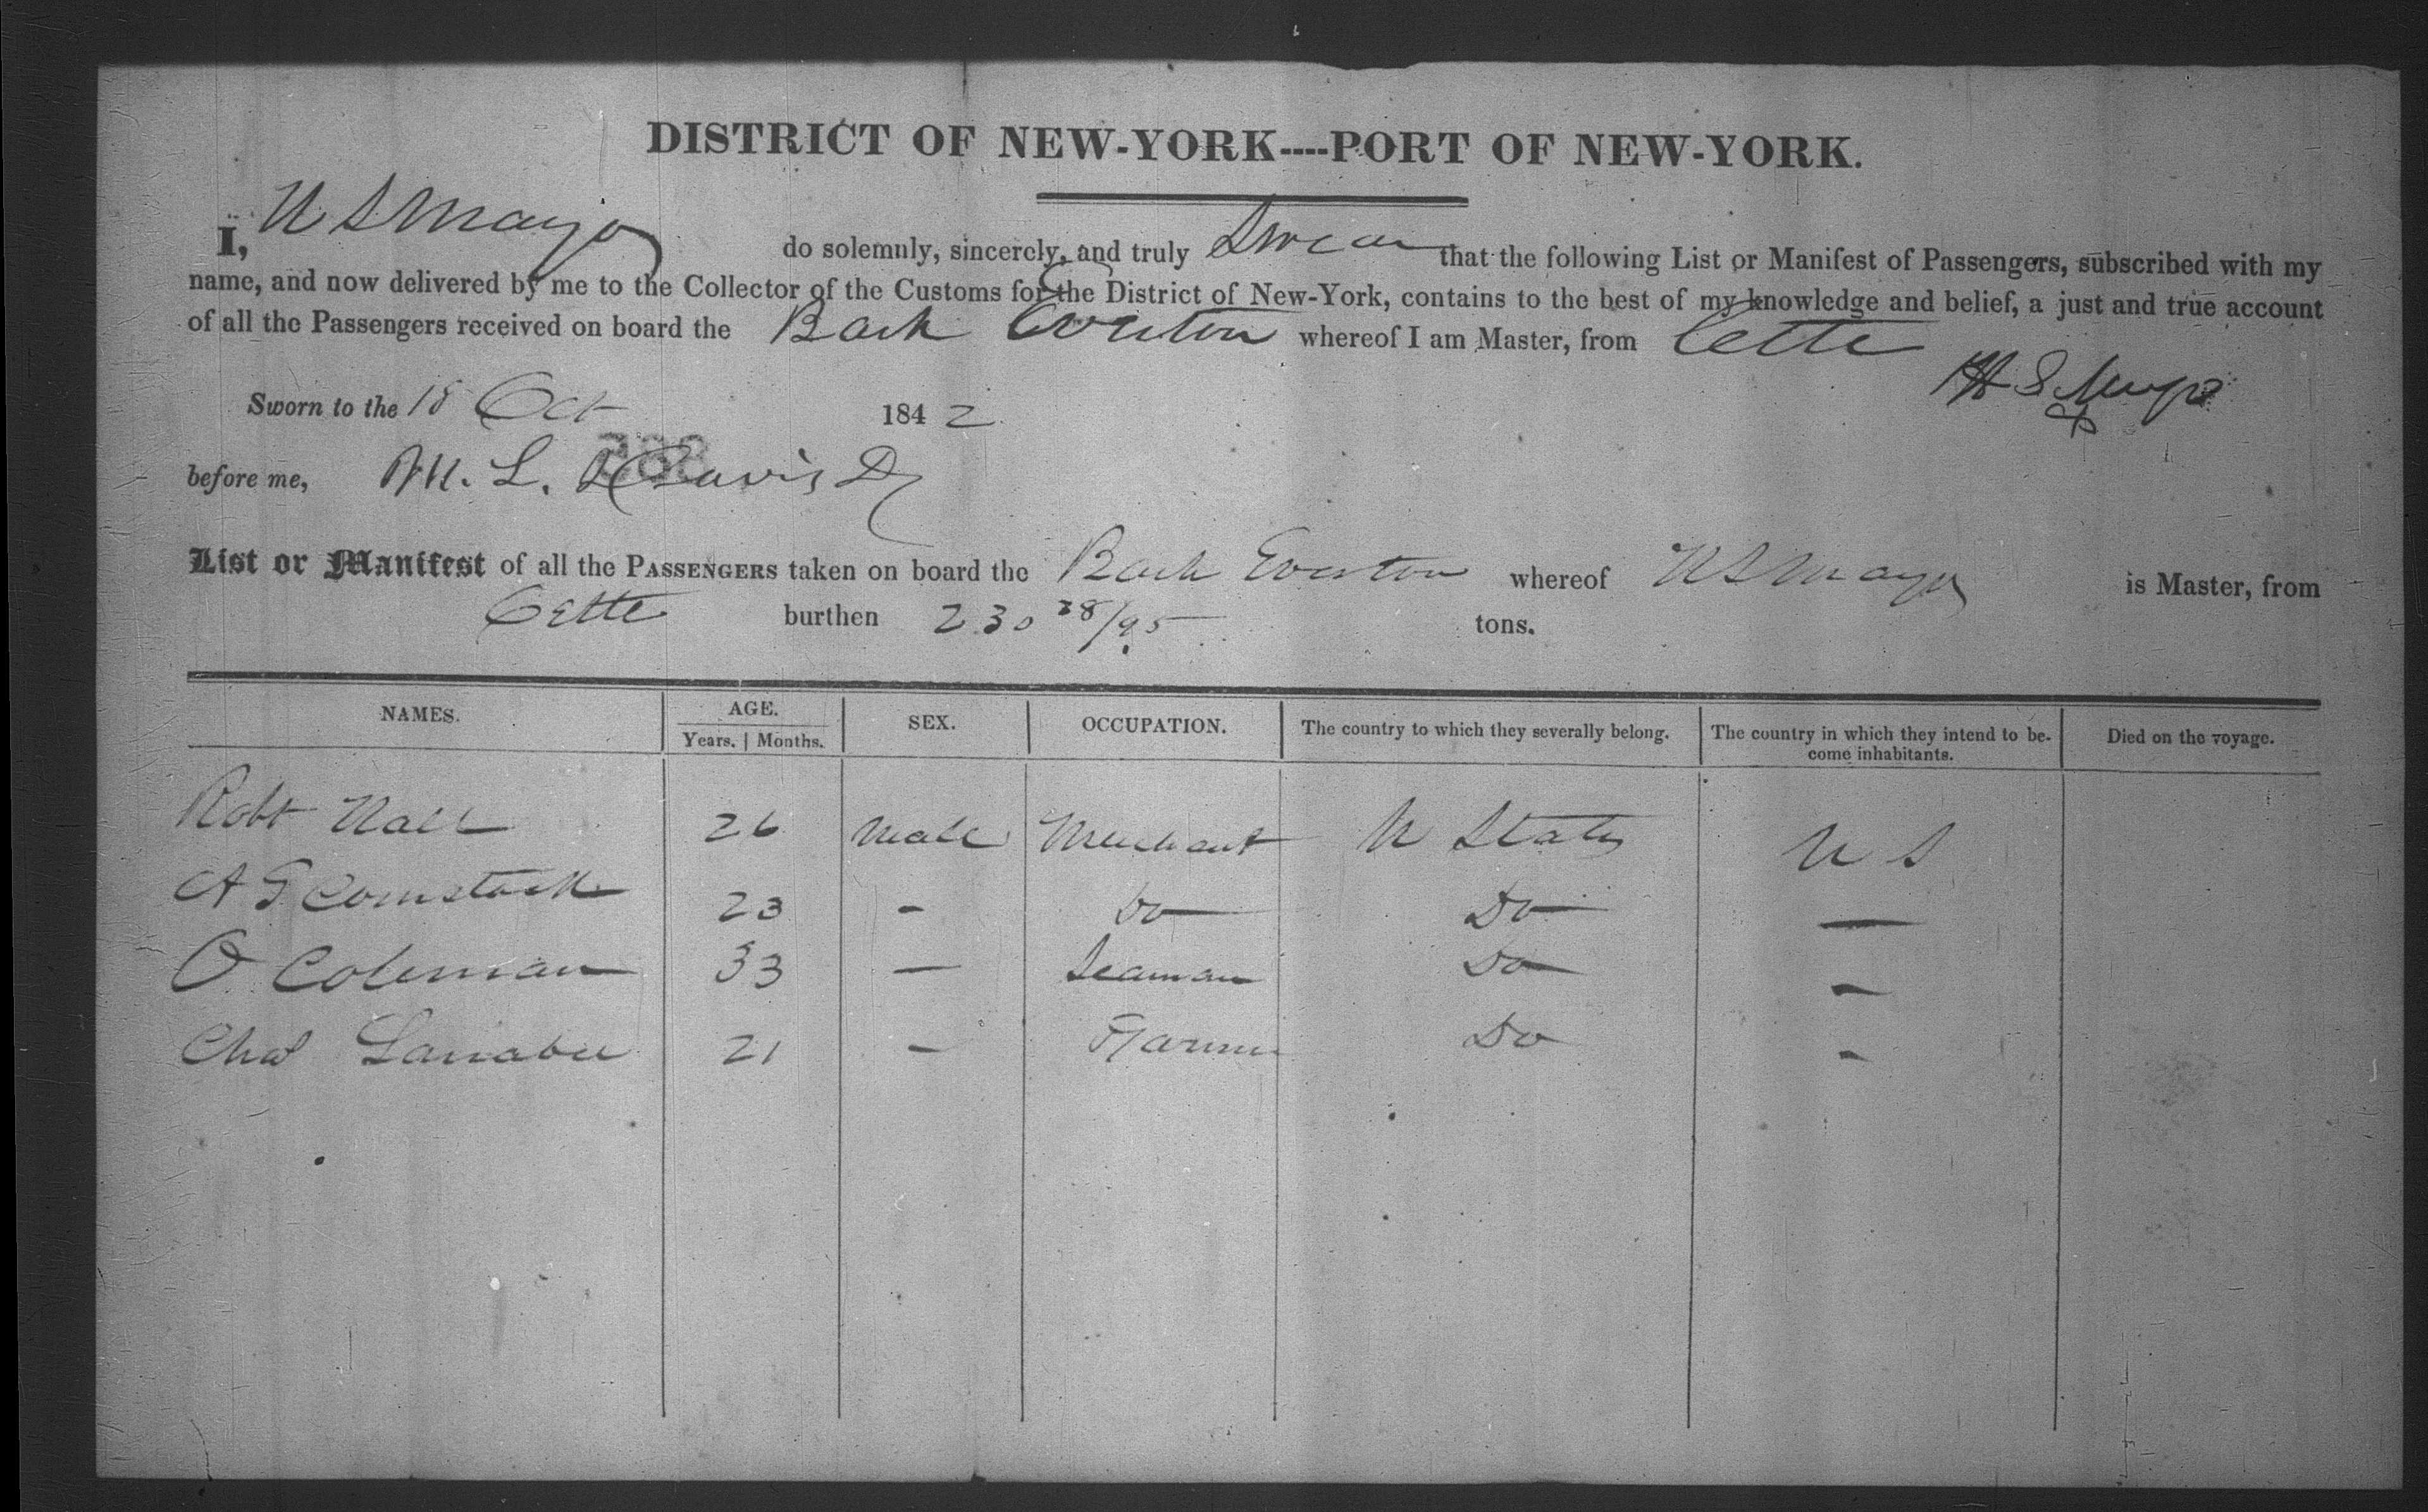 DISTRICT OF NEW-YORK----PORT OF NEW-YORK.
I, N S Mayo do solemnly, sincerely, and truly Swear that the following List or Manifest of Passengers, subscribed with my
name, and now delivered by me to the Collector of the Customs for the District of New-York, contains to the best of my knowledge and belief, a just and true account
of all the Passengers received on board the Bark Everton whereof I am Master, from Cette
Sworn to the 18 Oct 1842
before me, M. L. Davis
List or Manifest of all the PASSENGERS taken on board the Bark Everton whereof N S Mayo is Master, from
Cette burthen 230 28/95 tons.
NAMES. AGE. Years. | Months. SEX. OCCUPATION. The country to which they severally belong. The country in which they intend to be-come inhabitants. Died on the voyage.
Robt 26 Male Merchant U States U S
A G Comstock 23 - Do Do —
O Coleman 33 — Seaman Do -
Chas Larrabee 21 - Farmer Do -